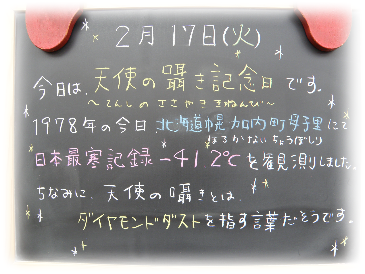 2月17日(火)
今日は、天使の囁き記念日です。
～てんしの ささやき きねんび～
1978年の今日、北海道幌加内町母子里にて
ほろかないちょうもしり
日本最寒記録-41.2℃を観測しました。
ちなみに、天使の囁きとは、
ダイヤモンドダストを指す言葉だそうです。